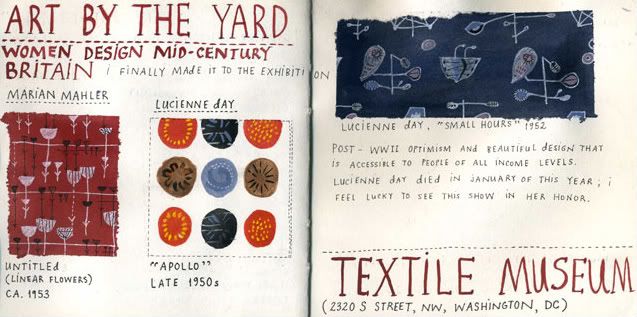 ART BY THE YARD
WOMEN DESIGN MID-CENTURY
BRITAIN i FINALLY MADE IT TO THE EXHIBITION
MARIAN MAHLER
LUCIENNE dAY
UNTITLEd
(LINEAR FLOWERS)
CA. 1953
"APOLLO"
LATE 1950s
LUCIENNE dAY, "SMALL HOURS" 1952
POST-WWII OPTIMISM ANd BEAUTIFUL dESIGN THAT
iS ACCESSIBLE TO PEOPLE OF ALL INCOME LEVELS.
LUCIENNE dAY dIEd IN JANUARY OF THIS YEAR; i
FEEL LUCKY TO SEE THIS SHOW IN HER HONOR.
TEXTILE MUSEUM
(2320 S STREET, NW, WASHINGTON, DC)